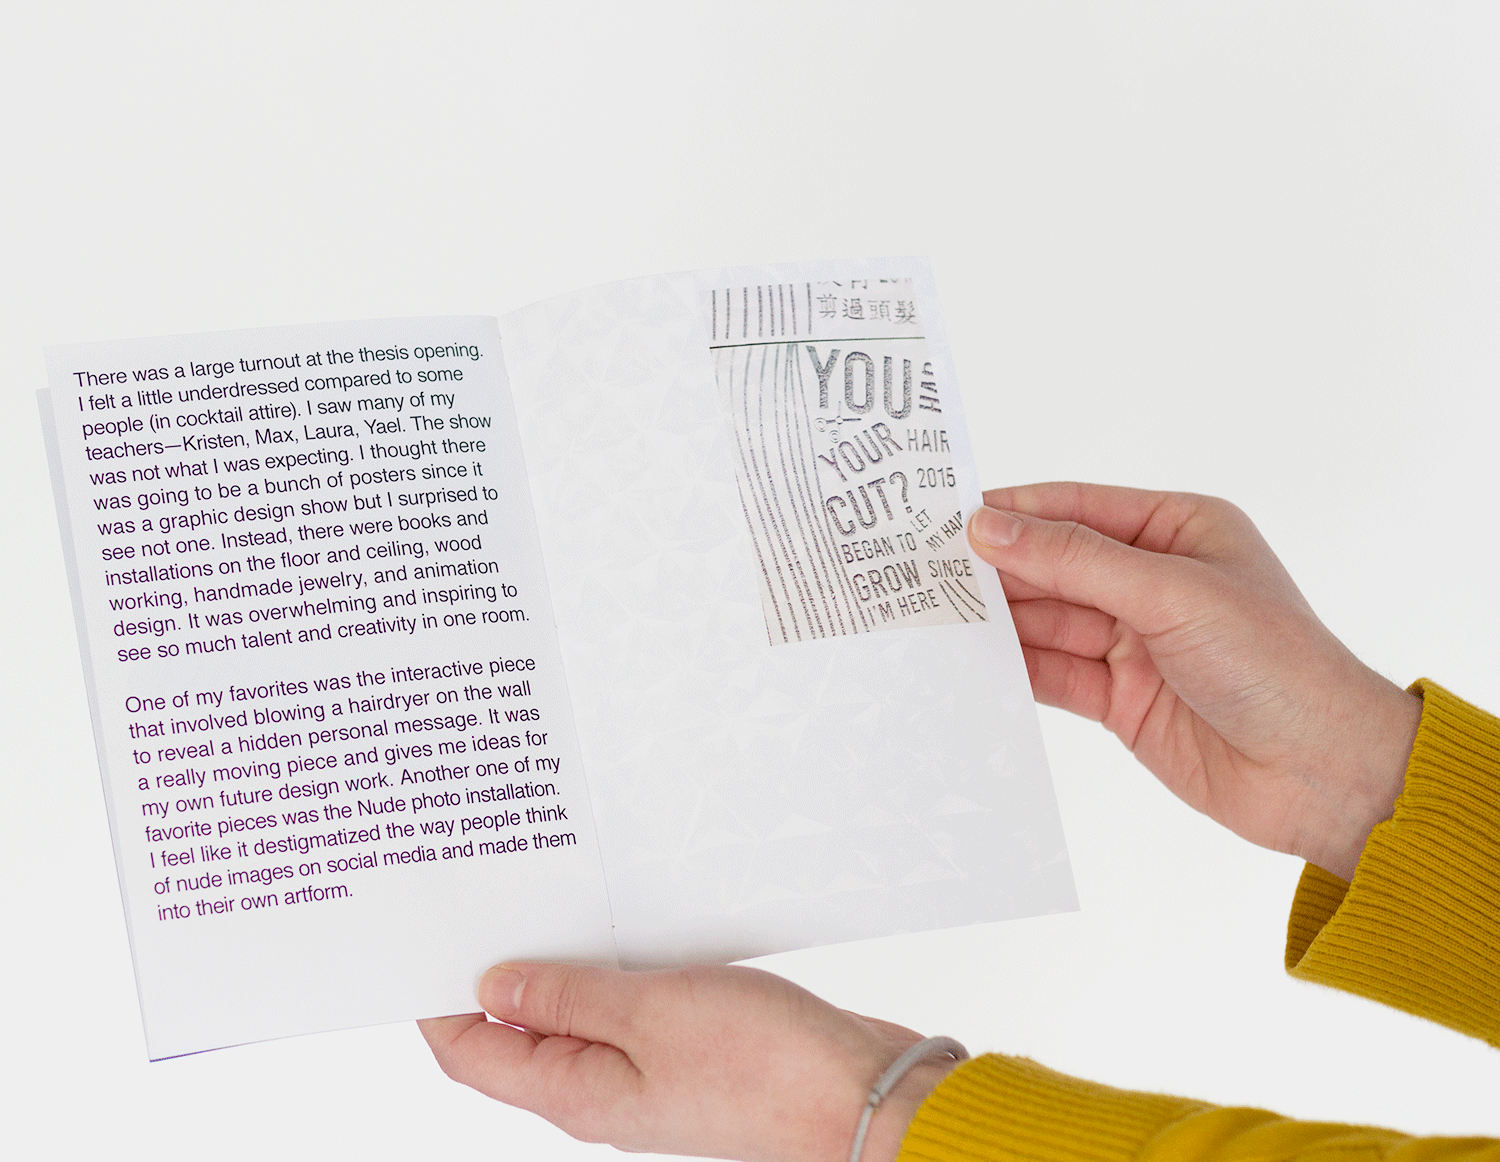 There was a large turnout at the thesis opening.
I felt a little underdressed compared to some
people (in cocktail attire). I saw many of my
teachers—Kristen, Max, Laura, Yael. The show
was not what I was expecting. I thought there
was going to be a bunch of posters since it
was a graphic design show but I surprised to
see not one. Instead, there were books and
installations on the floor and ceiling, wood
working, handmade jewelry, and animation
design. It was overwhelming and inspiring to
see so much talent and creativity in one room.
One of my favorites was the interactive piece
that involved blowing a hairdryer on the wall
to reveal a hidden personal message. It was
a really moving piece and gives me ideas for
my own future design work. Another one of my
favorite pieces was the Nude photo installation.
I feel like it destigmatized the way people think
of nude images on social media and made them
into their own artform.
剪過頭髮
YOU
HAP
YOUR HAIR
CUT? 2015
LET
BEGAN TO MY HAIR
GROW SINCE
I'M HERE